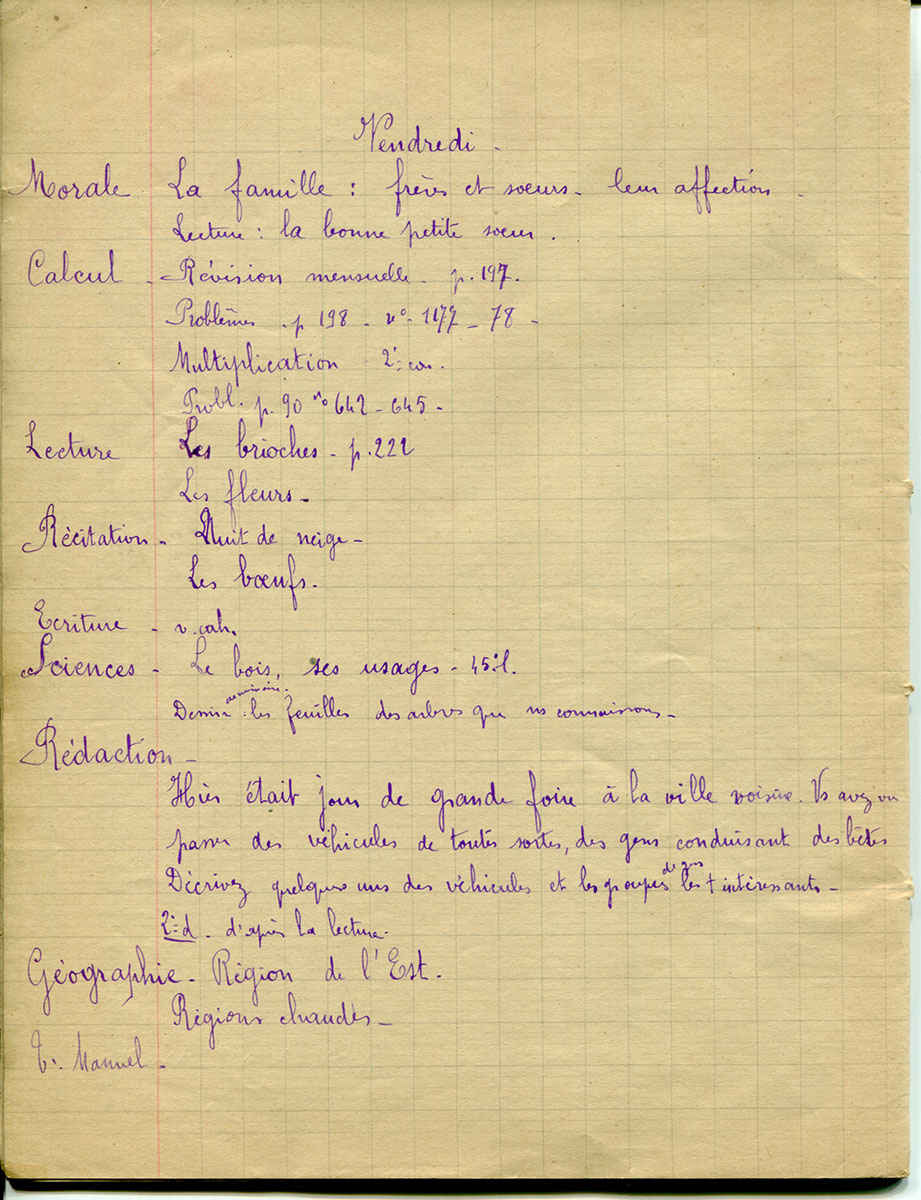 Vendredi -
Morale La famille : frères et sœurs - leur affection -
Lecture : la bonne petite sœur.
Calcul - Révision mensuelle - p. 197.
Problèmes . p 198 - nos 1177 - 78 -
Multiplication 2e cas.
Probl. p. 90 no 642 - 645 -
Lecture Les brioches - p. 222
Les fleurs -
Récitation - Nuit de neige -
Les bœufs.
Ecriture - v. cah.
Sciences - Le bois, ses usages - 45e l.
Dessin les feuilles des arbres que ns connaissons -
Rédaction -
Hier était jour de grande foire à la ville voisine. Vs avez vu
passer des véhicules de toutes sortes, des gens conduisant des bêtes
Décrivez quelques uns des véhicules et les groupes de gens les + intéressants -
2e d - d'après la lecture -
Géographie - Région de l'Est -
Régions chaudes -
T. Manuel -